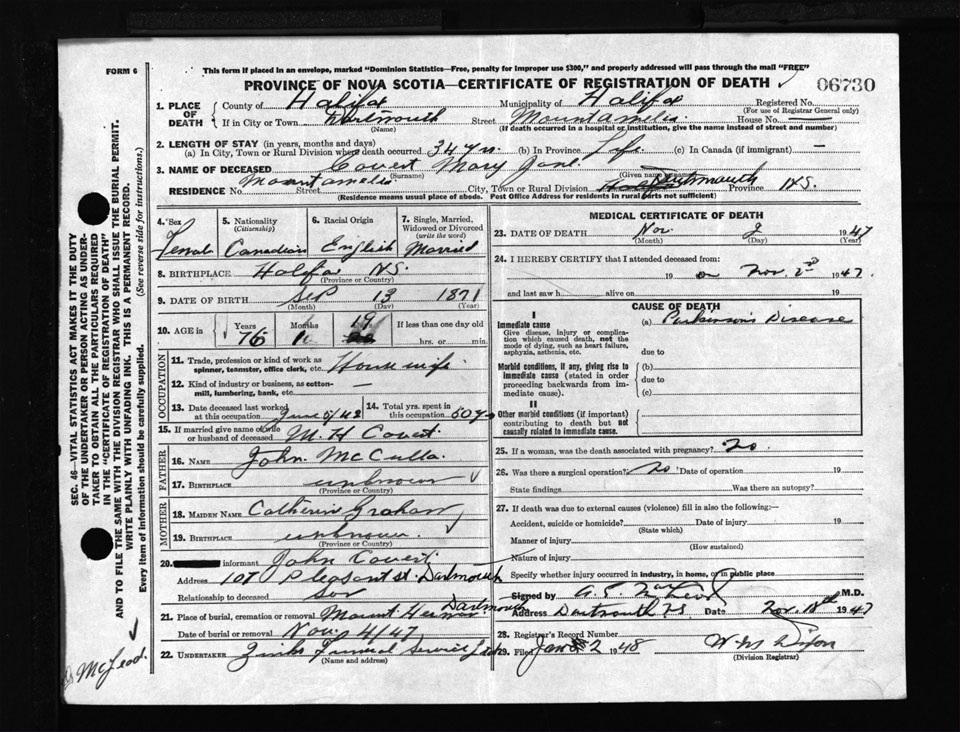 FORM 6
This form if placed in an envelope, marked "Dominion Statistics—Free, penalty for improper use $300," and properly addressed will pass through the mail "FREE"
PROVINCE OF NOVA SCOTIA—CERTIFICATE OF REGISTRATION OF DEATH 06730
1. PLACE OF DEATH County of Halifax Municipality of Halifax Registered No.
(For use of Registrar General only)
If in City or Town Dartmouth Street Mount Amelia House No. —
(Name) (If death occurred in a hospital or institution, give the name instead of street and number)
2. LENGTH OF STAY (in years, months and days)
(a) In City, Town or Rural Division where death occurred 34 yrs. (b) In Province Life (c) In Canada (if immigrant) —
3. NAME OF DECEASED Covert Mary Jane
(Surname) (Given names)
RESIDENCE No. Mount Amelia Street City, Town or Rural Division Dartmouth Province N.S.
(Residence means usual place of abode. Post Office Address for residents in rural parts not sufficient)
4. Sex 5. Nationality (Citizenship) 6. Racial Origin 7. Single, Married, Widowed or Divorced (write the word)
Female Canadian English Married
8. BIRTHPLACE Halifax N.S.
(Province or Country)
9. DATE OF BIRTH Sep 13 1871
(Month) (Day) (Year)
10. AGE in Years Months If less than one day old
76 1 19 hrs. or min.
OCCUPATION
11. Trade, profession or kind of work as spinner, teamster, office clerk, etc. Housewife
12. Kind of industry or business, as cotton-mill, lumbering, bank, etc. —
13. Date deceased last worked at this occupation June 5/42 14. Total yrs. spent in this occupation 50 yrs
15. If married give name of wife or husband of deceased M. H Covert
FATHER
16. NAME John McCulla
17. BIRTHPLACE unknown
(Province or Country)
MOTHER
18. MAIDEN NAME Catherin Graham
19. BIRTHPLACE unknown
(Province or Country)
20. informant John Covert
Address 107 Pleasant St. Dartmouth
Relationship to deceased Son
21. Place of burial, cremation or removal Mount Hermon Dartmouth
Date of burial or removal Nov. 4/47
22. UNDERTAKER Zinks Funeral Service Ltd
(Name and address)
MEDICAL CERTIFICATE OF DEATH
23. DATE OF DEATH Nov. 2 1947
(Month) (Day) (Year)
24. I HEREBY CERTIFY that I attended deceased from:
19 on Nov. 2nd 1947.
and last saw h alive on 19
CAUSE OF DEATH
I
Immediate cause (a) Parkinson's Disease
Give disease, injury or complication which caused death, not the mode of dying, such as heart failure, asphyxia, asthenia, etc.
due to
Morbid conditions, if any, giving rise to immediate cause (stated in order proceeding backwards from immediate cause).
(b)
due to
(c)
II
Other morbid conditions (if important) contributing to death but not causally related to immediate cause.
25. If a woman, was the death associated with pregnancy? No.
26. Was there a surgical operation? No. Date of operation 19
State findings Was there an autopsy?
27. If death was due to external causes (violence) fill in also the following:—
Accident, suicide or homicide? Date of injury 19
(State which)
Manner of injury
(How sustained)
Nature of injury
Specify whether injury occurred in industry, in home, or in public place
Signed by M.D.
Address Dartmouth N.S Date Nov. 18th 1947
28. Registrar's Record Number
29. Filed Jan 2 1948 W M Dixon
(Division Registrar)
SEC. 46—VITAL STATISTICS ACT MAKES IT THE DUTY
OF THE UNDERTAKER OR PERSON ACTING AS UNDER-
TAKER TO OBTAIN ALL THE PARTICULARS REQUIRED
IN THE "CERTIFICATE OF REGISTRATION OF DEATH"
AND TO FILE THE SAME WITH THE DIVISION REGISTRAR WHO SHALL ISSUE THE BURIAL PERMIT.
WRITE PLAINLY WITH UNFADING INK. THIS IS A PERMANENT RECORD.
Every item of information should be carefully supplied. (See reverse side for instructions.)
McLeod.